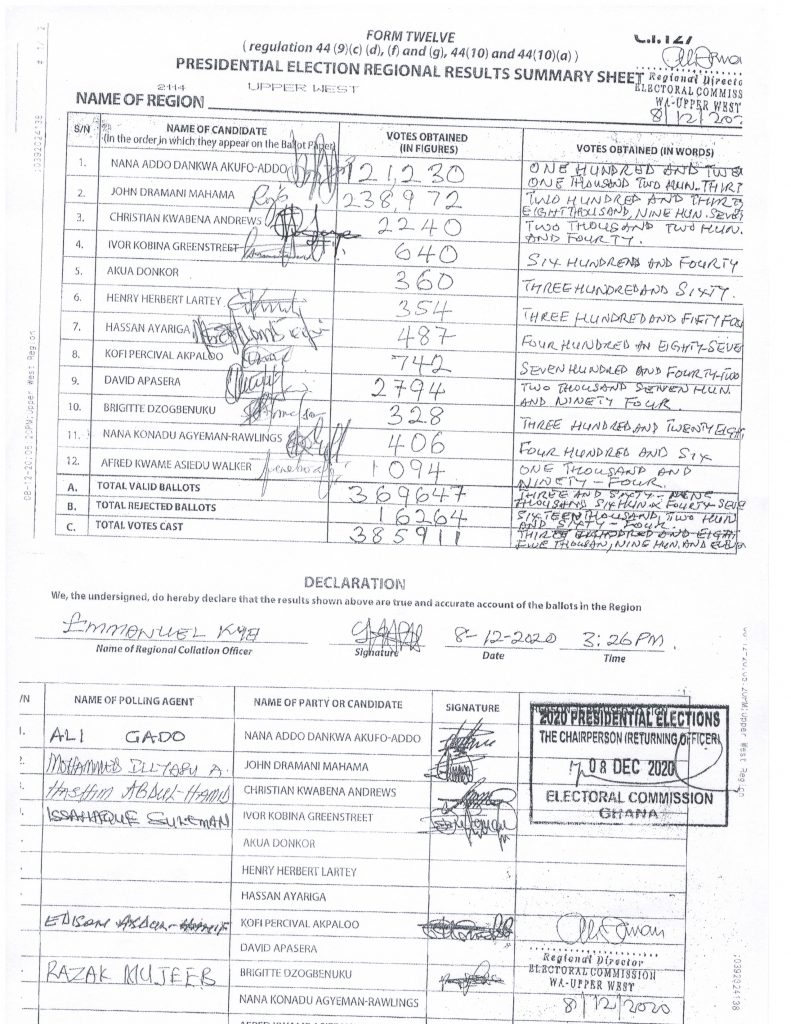 FORM TWELVE
C.I.127
( regulation 44 (9)(c) (d), (f) and (g), 44(10) and 44(10)(a) )
PRESIDENTIAL ELECTION REGIONAL RESULTS SUMMARY SHEET
Regional Directo
ELECTORAL COMMISS
WA-UPPER WEST
8/12/202
2114 UPPER WEST
NAME OF REGION
S/N NAME OF CANDIDATE (In the order in which they appear on the Ballot Paper) VOTES OBTAINED (IN FIGURES) VOTES OBTAINED (IN WORDS)
1. NANA ADDO DANKWA AKUFO-ADDO 121,230 ONE HUNDRED AND TWEN
ONE THOUSAND TWO HUN. THIRT
2. JOHN DRAMANI MAHAMA 238972 TWO HUNDRED AND THIRTY
EIGHT THOUSAND, NINE HUN. SEVEN
3. CHRISTIAN KWABENA ANDREWS 2240 TWO THOUSAND TWO HUN.
AND FOURTY.
4. IVOR KOBINA GREENSTREET 640 SIX HUNDREND AND FOURTY
5. AKUA DONKOR 360 THREE HUNDRED AND SIXTY.
6. HENRY HERBERT LARTEY 354 THREE HUNDRED AND FIFTY FOU
7. HASSAN AYARIGA 487 FOUR HUNDRED AN EIGHTY-SEVE
8. KOFI PERCIVAL AKPALOO 742 SEVEN HUNDRED AND FOURTY-TWO
9. DAVID APASERA 2794 TWO THOUSAND SEVEN HUN.
AND NINETY FOUR
10. BRIGITTE DZOGBENUKU 328 THREE HUNDRED AND TWENTY EIGH
11. NANA KONADU AGYEMAN-RAWLINGS 406 FOUR HUNDRED AND SIX
12. AFRED KWAME ASIEDU WALKER 1094 ONE THOUSAND AND
NINETY - FOUR.
A. TOTAL VALID BALLOTS 369647 THREE AND SIXTY - NINE
THOUSAND SIX HUN & FOURTY-SEVE
B. TOTAL REJECTED BALLOTS 16264 SIXTEEN THOUSAND, TWO HUN
AND SIXTY - FOUR.
C. TOTAL VOTES CAST 385911 THREE HUNDRED AND EIGHT
FIVE THOUSAN, NINE HUN. AND ELEVEN
DECLARATION
We, the undersigned, do hereby declare that the results shown above are true and accurate account of the ballots in the Region
EMMANUEL KYE 8-12-2020 3:26PM.
Name of Regional Collation Officer Signature Date Time
/N NAME OF POLLING AGENT NAME OF PARTY OR CANDIDATE SIGNATURE
1. ALI GADO NANA ADDO DANKWA AKUFO-ADDO
2. MOHAMMED A. JOHN DRAMANI MAHAMA
HASHIM ABDUL-HAMID CHRISTIAN KWABENA ANDREWS
ISSAHAQUE SULEMAN IVOR KOBINA GREENSTREET
AKUA DONKOR
HENRY HERBERT LARTEY
HASSAN AYARIGA
EDISON KOFI PERCIVAL AKPALOO
DAVID APASERA
RAZAK MUJEEB BRIGITTE DZOGBENUKU
NANA KONADU AGYEMAN-RAWLINGS
AFRED KWAME ASIEDU WALKER
2020 PRESIDENTIAL ELECTIONS
THE CHAIRPERSON (RETURNING OFFICER)
08 DEC 2020
ELECTORAL COMMISSION
GHANA
Regional Director
ELECTORAL COMMISSION
WA-UPPER WEST
8/12/2020
0392024138
08-12-20;05:20PM;Upper West Region
# 1/ 2